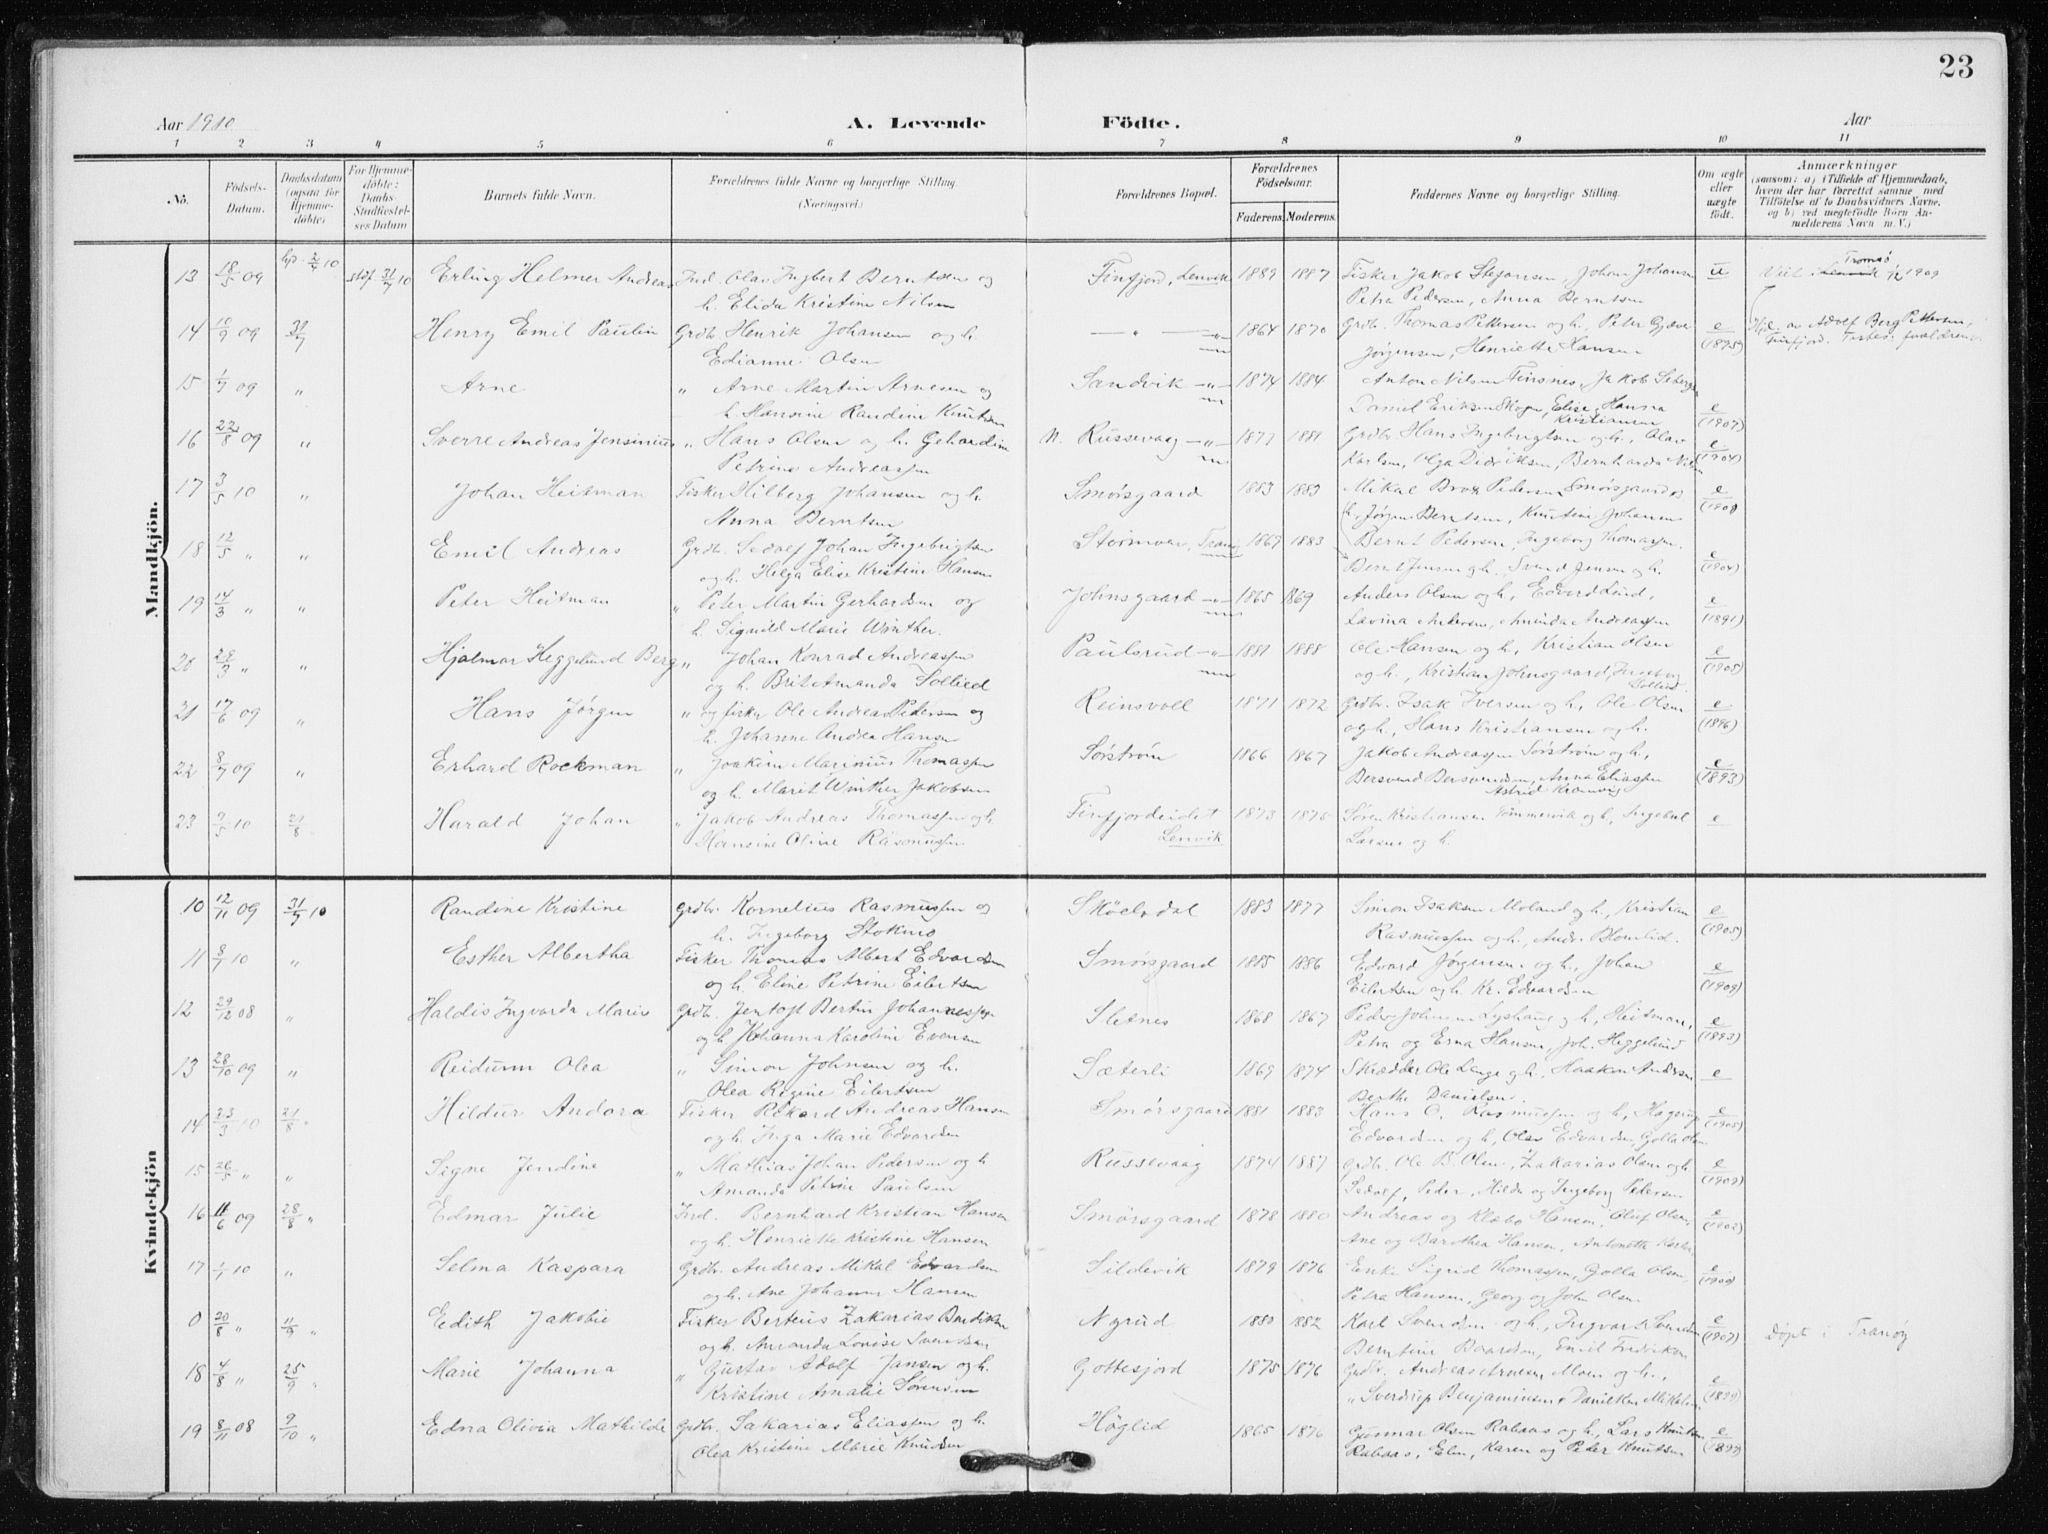 23
Aar 1910
A. Levende Födte.
Aar
1 2 3 4 5 6 7 8 9 10 11
No.
Födsels-Datum.
Daabsdatum (ogsaa for Hjemme-döbte)
For Hjemme-döbte: Daabs-Stadfæstel-ses Datum
Barnets fulde Navn.
Forældrenes fulde Navne og borgerlige Stilling (Næringsvei.)
Forældrenes Bopæl.
Forældrenes Födselsaar.
Faderens. Moderens.
Faddernes Navne og borgerlige Stilling.
Om ægte eller uægte födt.
Anmærkninger
(saasom: a) i Tilfælde af Hjemmedaab,
hvem der har forrettet samme, med
Tilföielse af to Daabsvidners Navne,
og b) ved uægtefödte Börn An-
melderens Navn m. V.)
Mandkjön.
13 18/5 09 stdf 31/7 10 Erling Helmer Andreas Ind. Olav Ingbert Berntsen og Finfjord, Lenvik 1889 1887 Fisker Jakob Stefansen, Johan Johansen u Tromsø
h. Elida Kristine Nilsen Petra Pedersen, Anna Berntsen
14 10/9 09 31/7 Henry Emil Paulin Grdb. Henrik Johansen og h. — " — 1864 1870 Grdb. Thomas Pettersen og h., Peter Gjæver e (1895) Hjd. av Adolf Berg Pettersen,
Edianne Olsen Jørgensen, Henriette Hansen Finfjord.
15 1/7 09 " Arne " Arne Martin Arnesen og Sandvik 1874 1884 Anton Nilsen Finsnes, Jakob Seberg
h. Hansine Randine Knutsen Daniel Eriksen Skogen, Elise, Hanna Kristiansen e (1907)
16 22/8 09 " Sverre Andreas Jensinius " Hans Olsen og h. Gehardine N. Russevaag 1877 1881 Grdb. Hans Ingebrigtsen og h., Olav e (1904)
Petrine Andreassen Karlsen, Olga Didriksen, Bernharda Nilsen
17 3/5 10 " Johan Heitman Fisker Hilberg Johansen og h. Smørsgaard 1883 1883 Mikal Brox Pedersen Smørsgaard og e
Anna Berntsen h., Jørgen Berntsen, Knutine Johansen
18 12/5 " " Emil Andreas Grdb. Sedolf Johan Ingebrigtsen Stormoen, Tranø 1869 1883 Bernt Pedersen, Ingeborg Thomassen.
og h. Helga Elise Kristine Hansen Bernt Jensen og h., Svend Jensen og h. e (1904)
19 14/3 " " Peter Heitman " Peter Martin Gerhardsen og Johnsgaard 1865 1869 Anders Olsen og h., Edvard Lund, e (1891)
h. Signild Marie Winther. Lavina Andersen, Aminda Andreassen
20 28/3 " " Hjalmar Heggelund Berg " Johan Konrad Andreassen Paulsrud 1881 1888 Ole Hansen og h., Kristian Olsen e (1908)
og h. Brit Amanda Sollied og h., Kristian Johnsgaard, Ingeborg Sollied.
21 17/6 09 " Hans Jørgen " og fisker Ole Andreas Pedersen og Reinsvoll 1871 1872 Grdb. Isak Iversen og h., Ole Olsen e (1896)
h. Johanne Andrea Hansen og h., Hans Kristiansen og h.
22 8/7 09 " Erhard Rockman " Joakim Marinius Thomassen Sørstrøm 1866 1867 Jakob Andreassen Sørstrøm og h., e (1893)
og h. Marit Winther Jakobsen Bersvend Bersvendsen, Anna Eliassen
Astrid Kramvig
23 7/5 10 21/8 Harald Johan " Jakob Andreas Thomassen og h. Finfjordeidet Lenvik 1873 1875 Søren Kristiansen Tømmervik og h., Ingebul e
Hansine Oline Rasmussen Larsen og h.
Kvindekjön
10 12/11 09 31/7 10 Randine Kristine Grdbr. Kornelius Rasmussen og Skøelvdal 1883 1877 Simon Isaksen Moland og h., Kristian e (1905)
h. Ingeborg Stokmo Rasmussen og h., Andr. Blomlid.
11 8/7 10 " Esther Albertha Fisker Thomas Albert Edvardsen Smørsgaard 1885 1886 Edvard Jørgensen og h., Johan e (1909)
og h. Eline Petrine Eilertsen Eilertsen og h. Kr. Edvardsen
12 29/12 08 " Haldis Ingvarda Marie Grdb. Jentoft Bertin Johannessen Sletnes 1868 1867 Peder Johnsen Lyshaug og h., Heitman, e (1893)
og h. Johanna Karoline Evensen Petra og Erna Hansen, Joh. Heggelund
13 28/10 09 " Reidunn Olea " Simon Johnsen og h. Sæterli 1869 1874 Skrædder Ole Lange og h., Haakon Andersen e
Olea Regine Eilertsen Berthe Danielsen.
14 23/3 10 21/8 " Hildur Andora Fisker Rikard Andreas Hansen Smørsgaard 1881 1883 Hans O. Rasmussen og h., Hagerup e (1905)
og h. Inga Marie Edvardsen Edvardsen og h., Olav Edvardsen, Golla Olsen
15 26/5 " " Signe Jendine " Mathias Johan Pedersen og h Russevaag 1874 1887 Grdb. Ole B. Olsen, Zakarias Olsen og h. e (1909)
Amanda Petrine Paulsen Sedolf, Peder, Hilda og Ingeborg Pedersen
16 11/6 09 28/8 " Edmar Julie Ind. Bernhard Kristian Hansen Smørsgaard 1878 1880 Andreas og Klæbo Hansen, Oluf Olsen, e (1902)
og h. Henriette Kristine Hansen Ane og Barothea Hansen, Antonette
17 1/7 10 " Selma Kaspara Grdb. Andreas Mikal Edvardsen Sildevik 1879 1876 Enke Sigrid Thomassen, Golla Olsen, e
og h. Ane Johanna Hansen Petra Hansen, Georg og John Olsen.
0 20/8 " 11/9 " Edith Jakobie Fisker Berteus Zakarias Bendiksen Nyrud 1880 1882 Karl Svendsen og h., Ingvart Svendsen e (1907) Døpt i Tranøy
og h. Amanda Lovise Svendsen Berntine Baardsen, Emil Fredriksen
18 4/8 " 25/9 " Marie Johanna " Gustav Adolf Jansen og h. Gottesjord 1875 1876 Grdb. Andreas Arnesen Moen og h., e (1899)
Kristine Amalie Sørensen " Sverdrup Benjaminsen,
19 8/11 08 9/10 " Edna Olivia Mathilde Grdb. Sakarias Eliassen og h. Høglid 1865 1876 Gunnar Olsen Rabaas og h., Lars Knutsen e
Olea Kristine Marie Knudsen Rabaas, Elen, Karen og Peder Knutsen